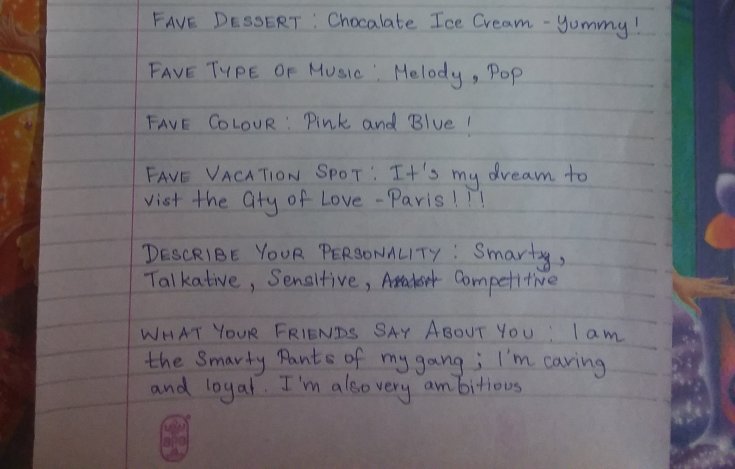 FAVE DESSERT : Chocalate Ice Cream - Yummy!
FAVE TYPE OF MUSIC : Melody, Pop
FAVE COLOUR : Pink and Blue!
FAVE VACATION SPOT : It's my dream to
vist the City of Love - Paris!!!
DESCRIBE YOUR PERSONALITY : Smarty,
Talkative, Sensitive, Competitive
WHAT YOUR FRIENDS SAY ABOUT YOU : I am
the Smarty Pants of my gang; I'm caring
and loyal. I'm also very ambitious